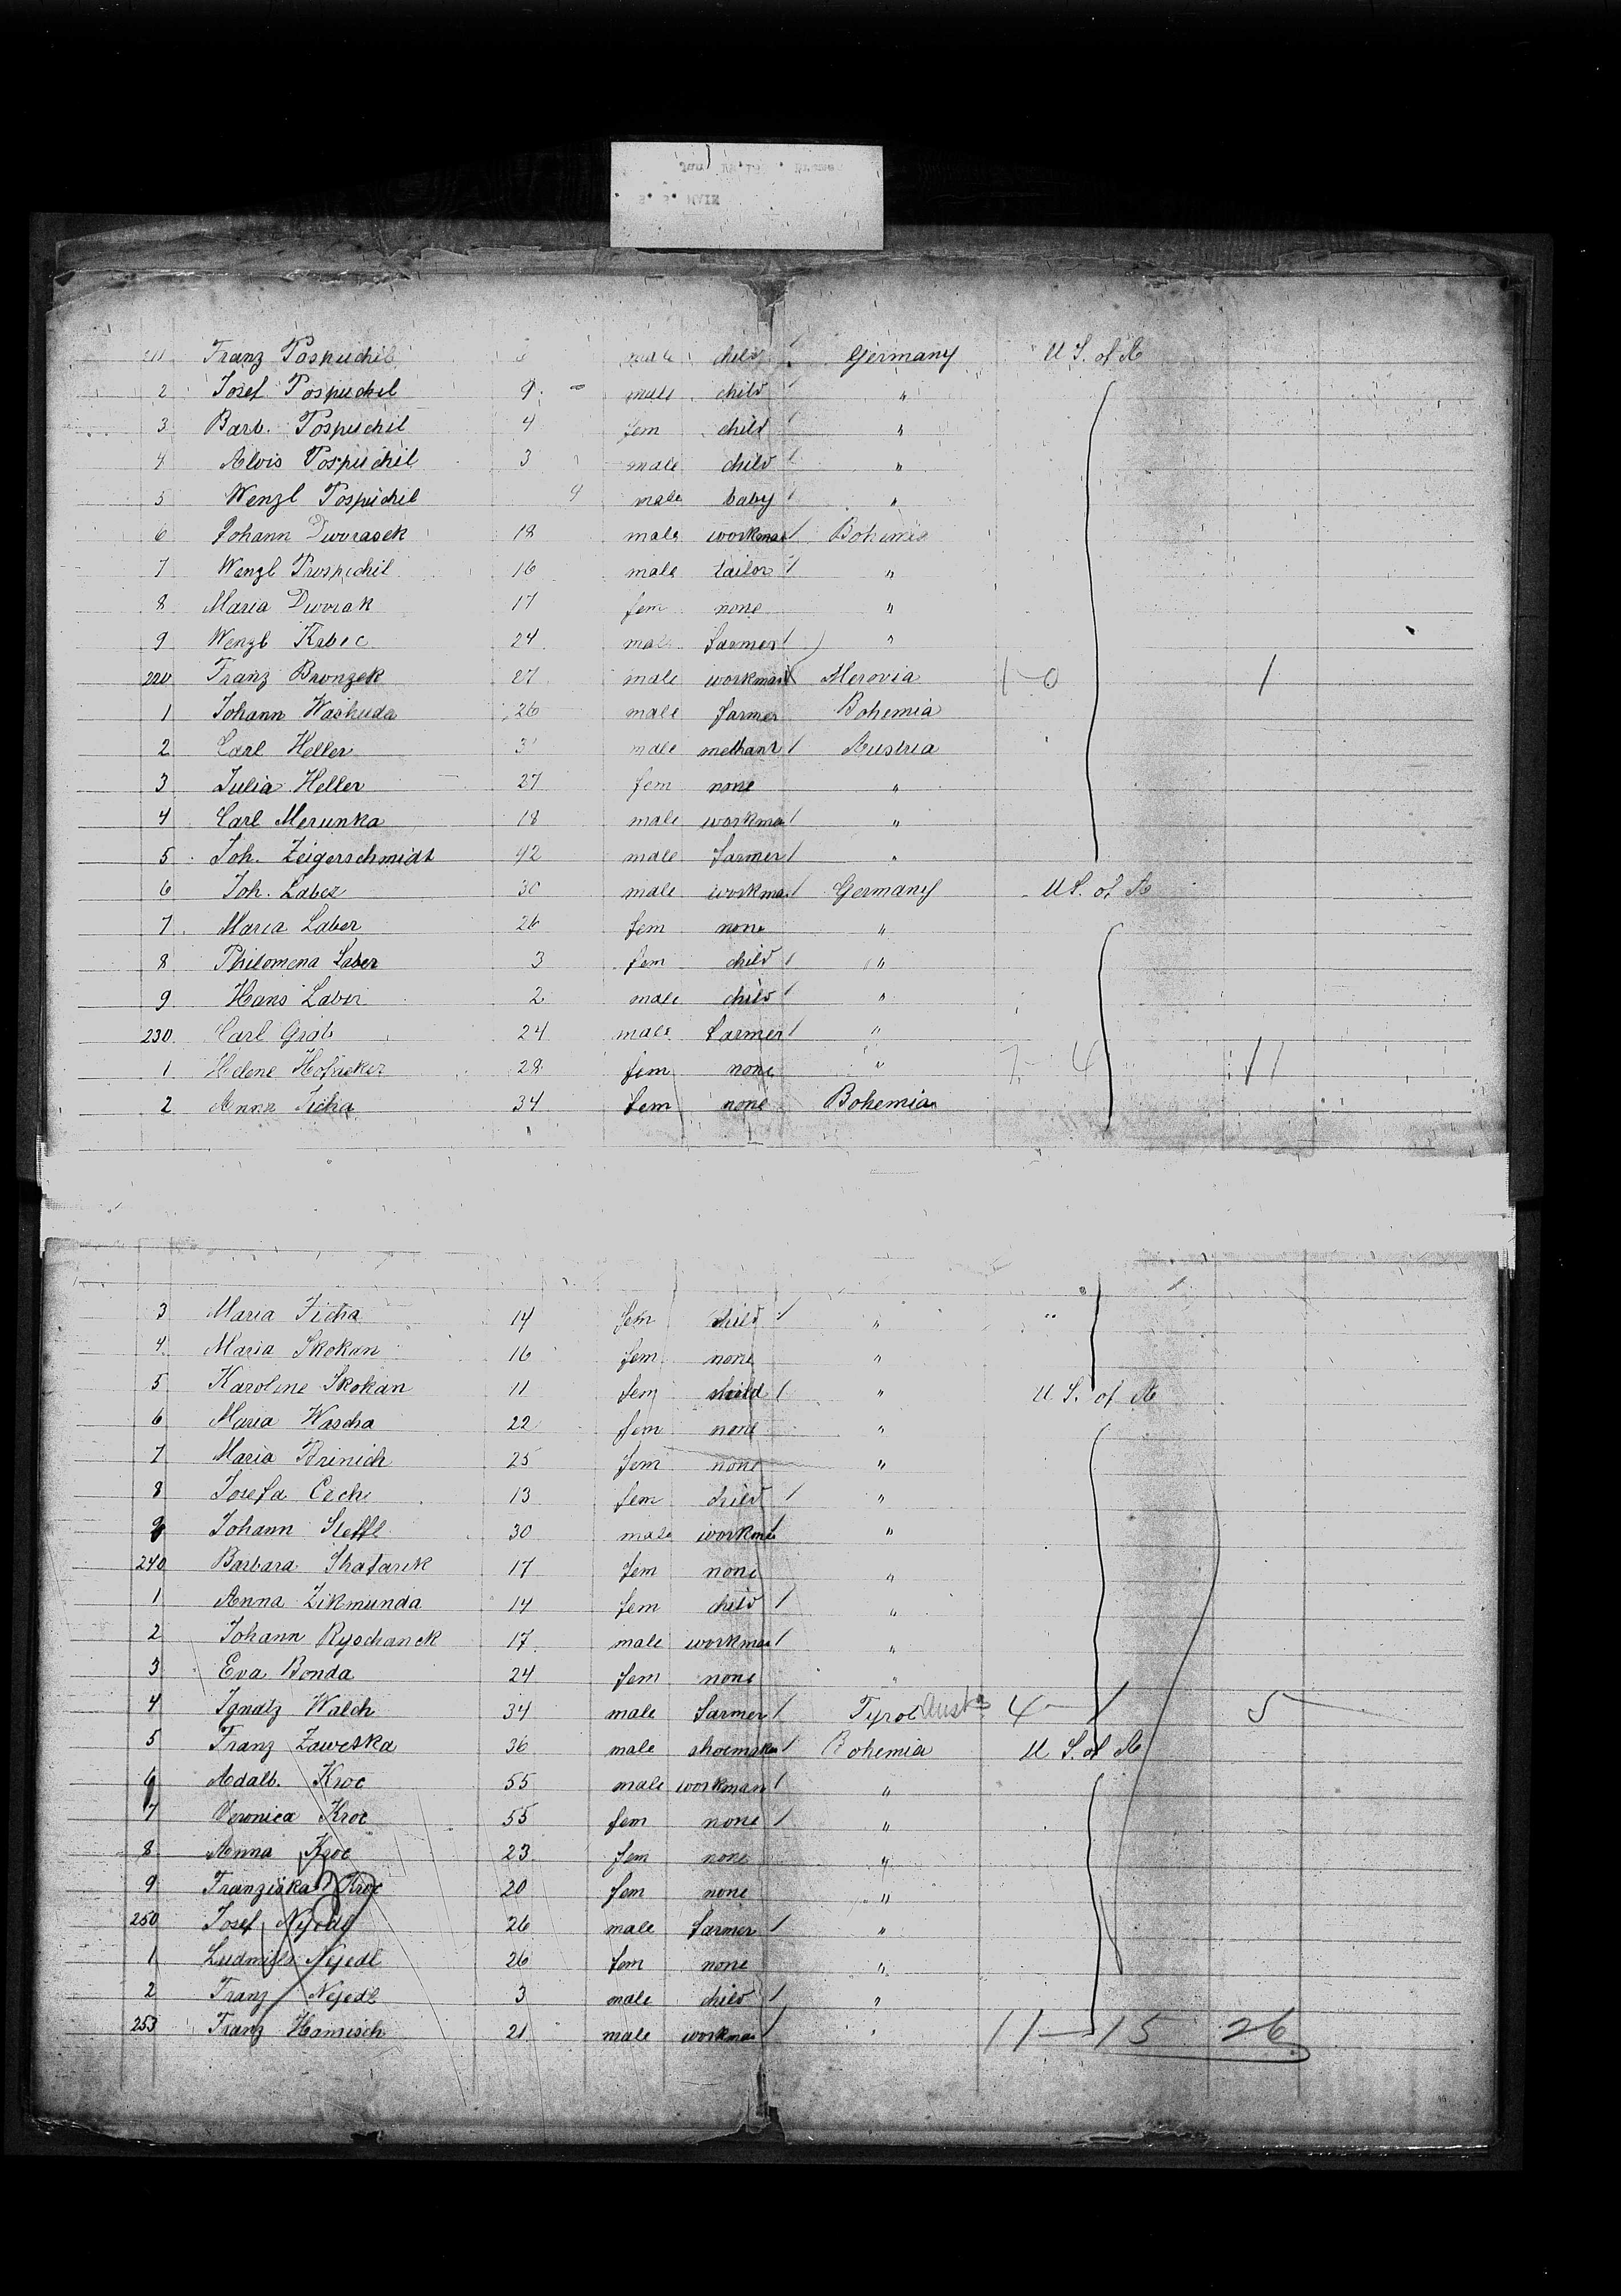 211 Franz Pospuchil male child Germany U S. of A
2 Josef Pospuchil 9 male child "
3 Barb. Pospuchil 4 fem child "
4 Alois Pospuchil 3 male child "
5 Wenzl Pospuchil 9 male baby "
6 Johann Dworasek 18 male workman Bohemia
7 Wenzl Prospichil 16 male tailor "
8 Maria Dworak 17 fem none "
9 Wenzl Krbec 24 male farmer "
220 Franz Bronzek 27 male workman Merovia 1-0 1
1 Johann Waskuda 26 male farmer Bohemia
2 Carl Heller male methant Austria
3 Julia Heller 27 fem none "
4 Carl Merunka 18 male workman "
5 Joh. Zeigerschmidt 42 male farmer "
6 Joh. Laber 30 male workman Germany U S. of A
7 Maria Laber 26 fem none "
8 Philomena Laber 3 fem child "
9 Hans Laber 2 male child "
230 Carl Grab 24 male farmer "
1 Helene Hofreker 28 fem none " 7- 4 11
2 Anna Ticha 34 fem none Bohemia
3 Maria Ticha 14 fem child " "
4 Maria Skokan 16 fem none "
5 Karoline Skokan 11 fem child " U S. of A
6 Maria Wascha 22 fem none "
7 Maria Brinich 25 fem none "
8 Josefa Cech 13 fem child "
9 Johann Steffl 30 male workman "
240 Barbara Shafarik 17 fem none "
1 Anna Zikmunda 14 fem child "
2 Johann Ryschanek 17 male workman "
3 Eva Bonda 24 fem none "
4 Ignatz Walch 34 male farmer Tyrol Aust 4 - 1 5
5 Franz Zaweska 36 male shoemaker Bohemia U S. of A
6 Adalb. Kroc 55 male workman "
7 Veronica Kroc 55 fem none "
8 Anna Kroc 23 fem none "
9 Franziska Kroc 20 fem none "
250 Josef Nejedl 26 male farmer "
1 Ludmila Nejedl 26 fem none "
2 Franz Nejedl 3 male child "
253 Franz Hamisch 21 male workman " 11-15 26